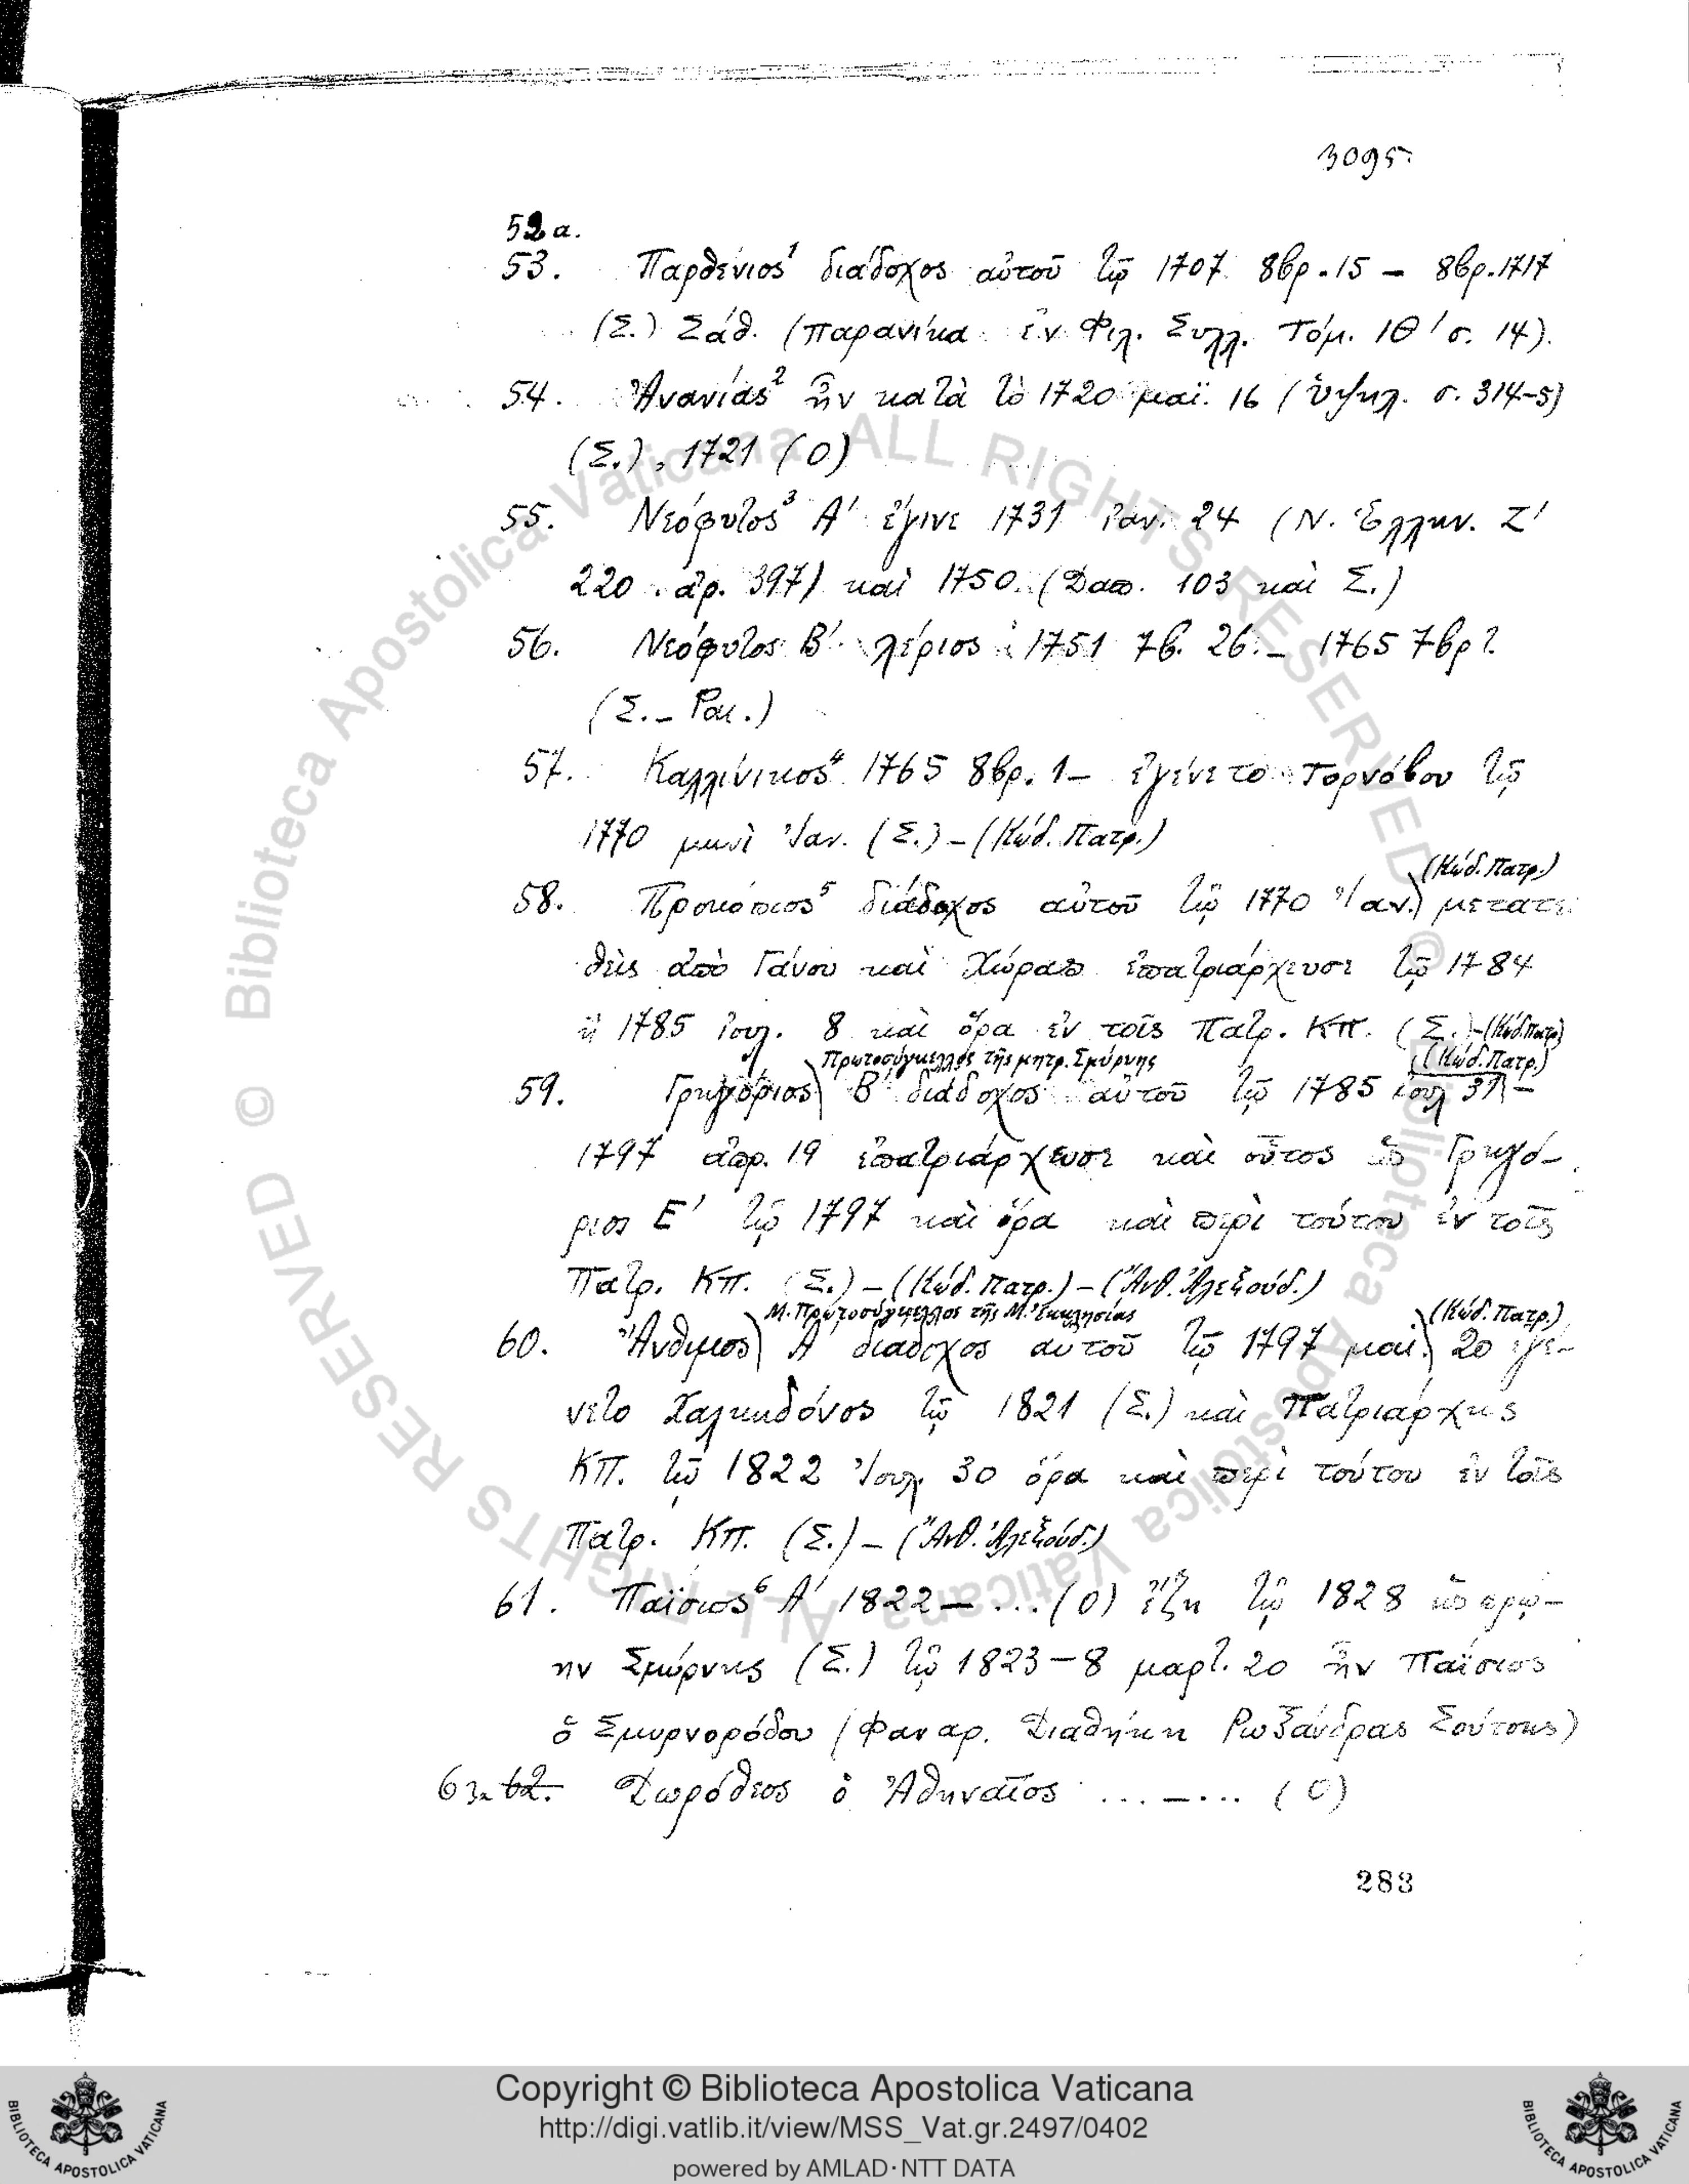 3095.
52 α.
53. Παρθένιος¹ διάδοχος αὐτοῦ τῷ 1707 8βρ. 15 – 8βρ. 1717
(Σ.) Σάθ. (Παρανίκα ἐν Φιλ. Συλλ. Τόμ. ΙΘ΄ σ. 14).
54. Ἀνανίας² ἦν κατὰ τὸ 1720 μαΐ. 16 (ὑψηλ. σ. 314-5)
(Σ.), 1721 (Ο)
55. Νεόφυτος³ Α΄ ἔγινε 1731 Ἰαν. 24 (Ν. Ἑλλην. Ζ΄
220. ἀρ. 397) καὶ 1750. (Δαπ. 103 καὶ Σ.)
56. Νεόφυτος Β΄ λέριος 1751 7β. 26. – 1765 7βρ?.
(Σ. – Ρακ.)
57. Καλλίνικος⁴ 1765 8βρ. 1 – ἐγένετο Τορνόβου τῷ
1770 μηνὶ Ἰαν. (Σ.) – (Κώδ. Πατρ.)
58. Προκόπιος⁵ διάδοχος αὐτοῦ τῷ 1770 Ἰαν.) (Κώδ. Πατρ.) μετατε
θεὶς ἀπὸ Γάνου καὶ Χώρας ἐπατριάρχευσε τῷ 1784
ἢ 1785 Ἰουλ. 8 καὶ ὅρα ἐν τοῖς Πατρ. ΚΠ. (Σ.) – (Κώδ. Πατρ)
Πρωτοσύγκελλος τῆς μητρ. Σμύρνης (Κώδ. Πατρ.)
59. Γρηγόριος) Β΄ διάδοχος αὐτοῦ τῷ 1785 ἰουλ 31) –
1797 ἀπρ. 19 ἐπατριάρχευσε καὶ οὗτος ὡς Γρηγό-
ριος Ε΄ τῷ 1797 καὶ ὅρα καὶ περὶ τούτου ἐν τοῖς
Πατρ. ΚΠ. (Σ.) – (Κώδ. Πατρ.) – (Ἄνθ. Ἀλεξούδ.)
Μ. Πρωτοσύγκελλος τῆς Μ. Ἐκκλησίας (Κώδ. Πατρ.)
60. Ἄνθιμος) Α΄ διάδοχος αὐτοῦ τῷ 1797 μαΐ.) 20 ἐγέ-
νετο Χαλκηδόνος τῷ 1821 (Σ.) καὶ Πατριάρχης
ΚΠ. τῷ 1822 Ἰουλ. 30 ὅρα καὶ περὶ τούτου ἐν τοῖς
Πατρ. ΚΠ. (Σ.) – (Ἄνθ. Ἀλεξούδ.)
61. Παΐσιος⁶ Α΄ 1822 – ... (Ο) ἔζη τῷ 1828 ὡς πρῴ-
ην Σμύρνης (Σ.) τῷ 1823–8 μαρτ. 20 ἦν Παΐσιος
ὁ Σμυρνορόδου (Φαναρ. Διαθήκη Ρωξάνδρας Σούτσης)
63. 62. Δωρόθεος ὁ Ἀθηναῖος ... – ... (Ο)
283
© Biblioteca Apostolica Vaticana ALL RIGHTS RESERVED © Biblioteca Apostolica Vaticana ALL RIGHTS RESERVED
Copyright © Biblioteca Apostolica Vaticana
http://digi.vatlib.it/view/MSS_Vat.gr.2497/0402
powered by AMLAD·NTT DATA
BIBLIOTECA APOSTOLICA VATICANA
BIBLIOTECA APOSTOLICA VATICANA